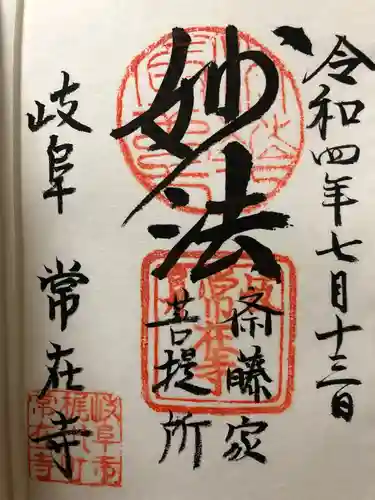 令和四年七月十三日
妙法
斎藤家
菩提所
岐阜 常在寺
常在寺